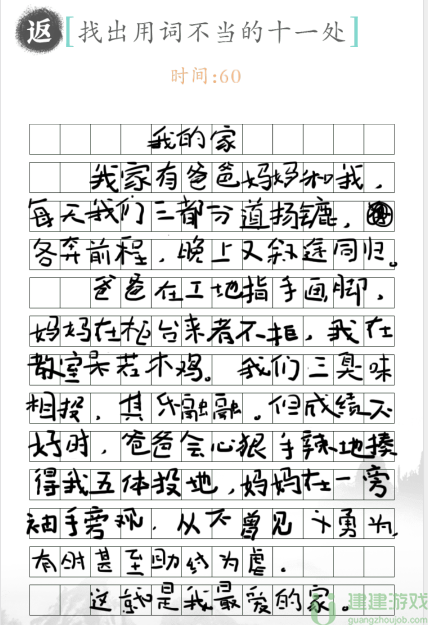 返
[找出用词不当的十一处]
时间:60
我的家
我家有爸爸妈妈和我，
每天我们三都分道扬镳，
各奔前程，晚上又殊途同归。
爸爸在工地指手画脚，
妈妈在柜台来者不拒，我在
教室呆若木鸡。我们三臭味
相投，其乐融融。但成绩不
好时，爸爸会心狠手辣地揍
得我五体投地，妈妈在一旁
袖手旁观，从不曾见义勇为，
有时甚至助纣为虐。
这就是我最爱的家。
建建游戏
guangzhoujob.com